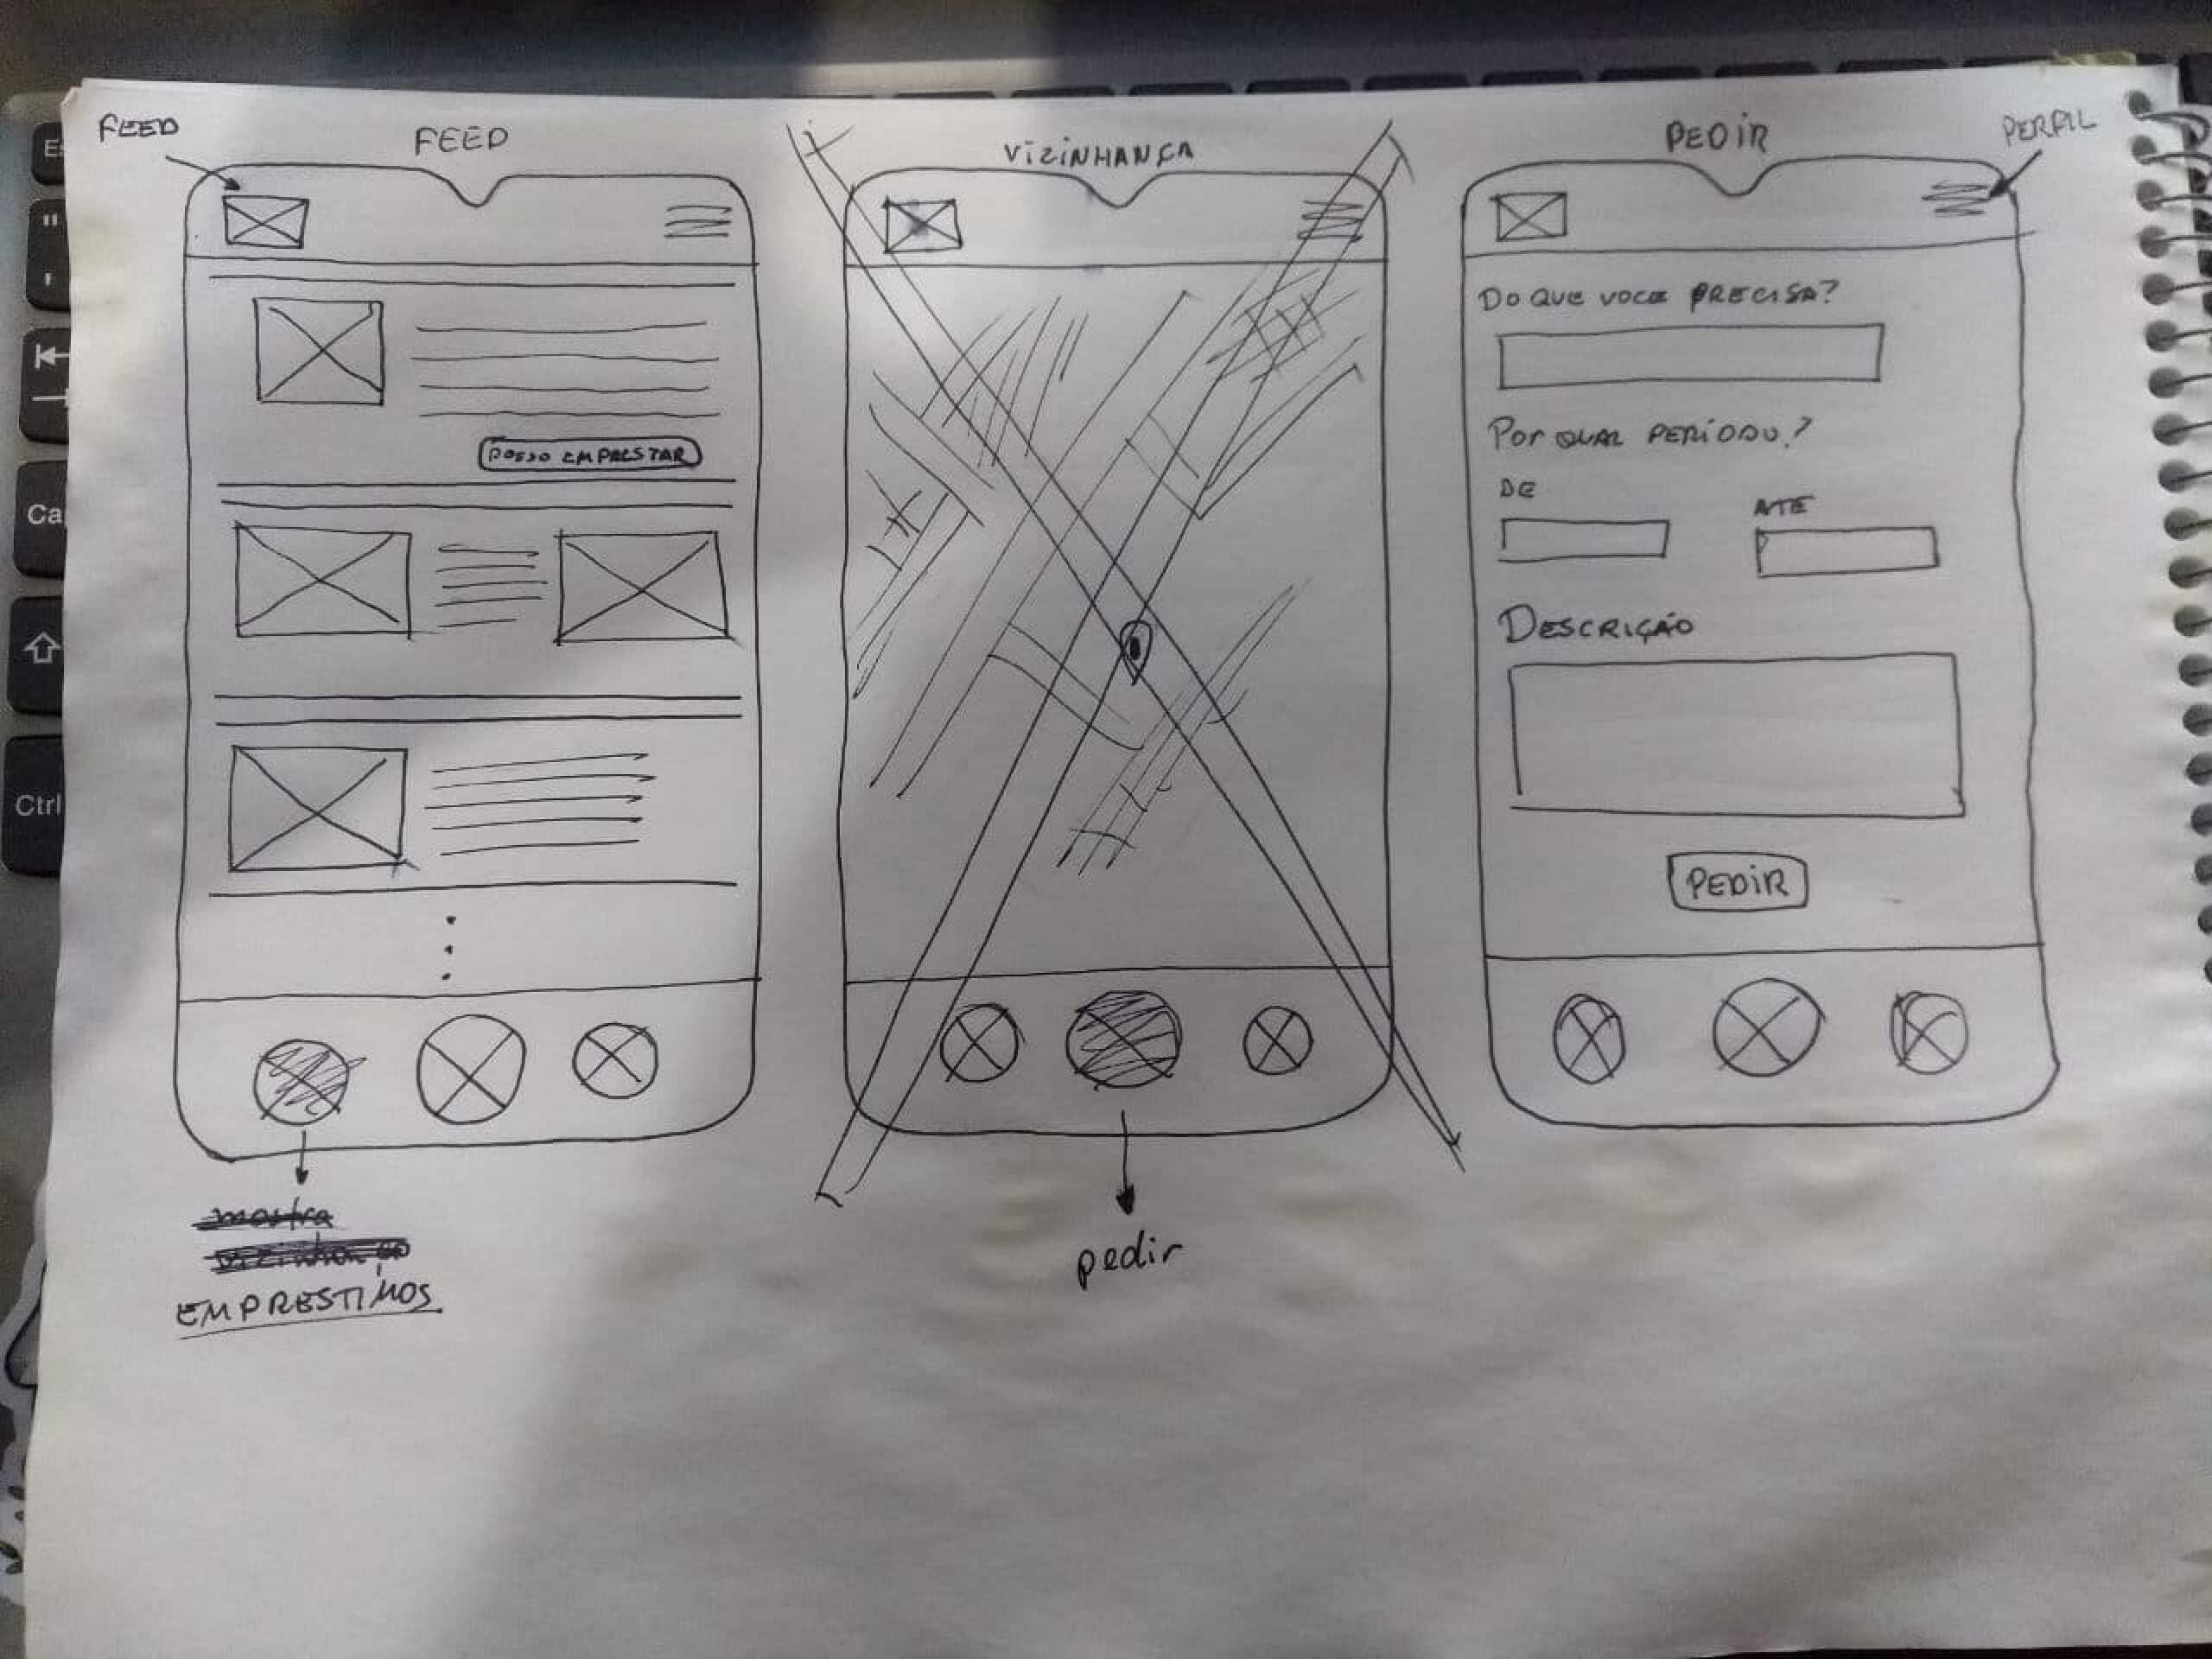 FEED
FEED
POSSO EMPRESTAR
mostra
vizinhança
EMPRESTIMOS
VIZINHANÇA
pedir
PEDIR
PERFIL
DO QUE VOCE PRECISA?
POR QUAL PERÍODO?
DE
ATE
DESCRIÇÃO
PEDIR
Ca
Ctrl